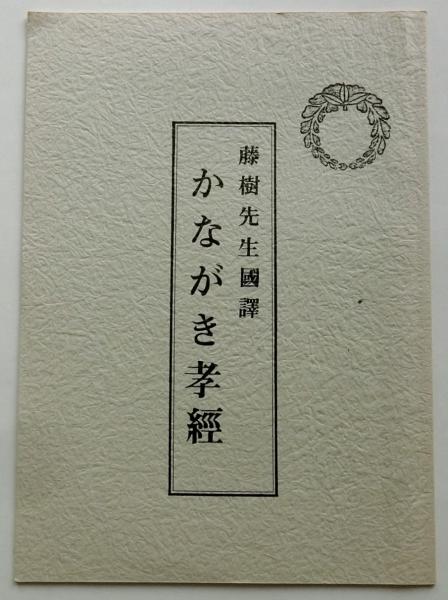 藤樹先生國譯
かながき孝經